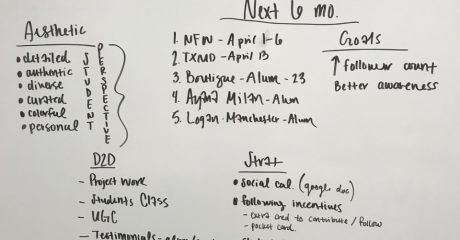 Next 6 mo.
Aesthetic
• detailed
• authentic
• diverse
• curated
• colorful
• personal
STUDENT
PERSPECTIVE
1. NFW - April 1-6
2. TXMD - April 13
3. Boutique - Alum - 23
4. Milan - Alum
5. Logan. Manchester - Alum
Goals
↑ follower count
Better awareness
D2D
- Project Work
- Students Class
- UGC
- Testimonials -
Strat
• social cal. (google doc)
• following incentives
- extra cred to contribute / follow
- pocket card.